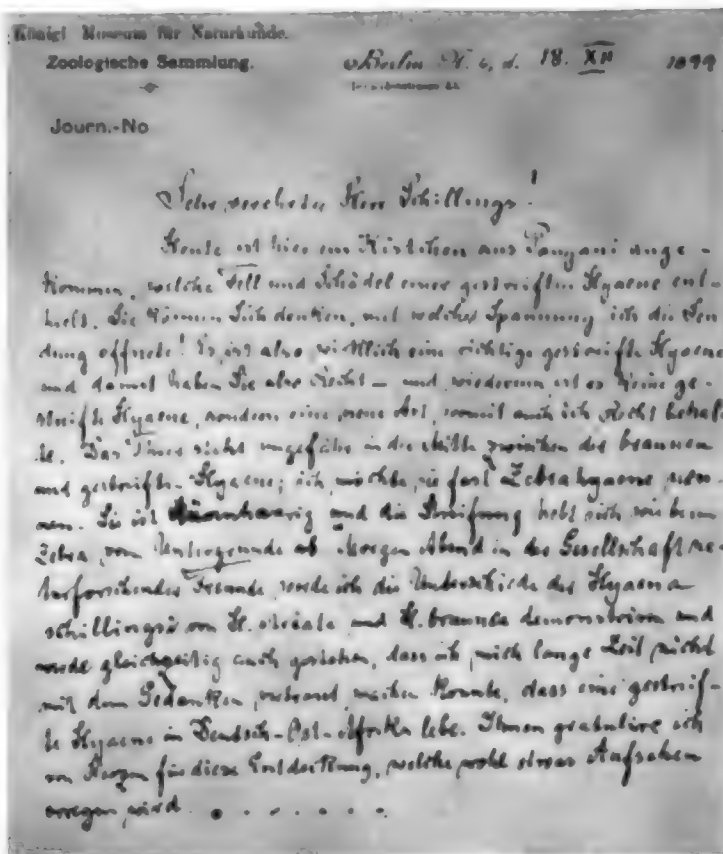 Königl. Museum für Naturkunde.
Zoologische Sammlung.
Berlin N. 4, d. 18. XII 1899
Journ.-No
Sehr verehrter Herr Schillings!
Heute ist hier ein Kistchen aus Pangani ange-
kommen, welche Fell und Schädel einer gestreiften Hyaene ent-
hielt. Sie können Sich denken, mit welcher Spannung ich die Sen-
dung öffnete! Es ist also wirklich eine richtige gestreifte Hyaene
und damit haben Sie also Recht — und wiederum ist es keine ge-
streifte Hyaene, sondern eine neue Art, womit auch ich Recht behal-
te. Das Thier steht ungefähr in der Mitte zwischen der braunen
und gestreiften Hyaene; ich möchte sie fast Zebrahyaene nen-
nen. Sie ist und die Streifung hebt sich wie beim
Zebra vom Untergrunde ab. Morgen Abend in der Gesellschaft na-
turforschender Freunde werde ich die Unterschiede der Hyaena
schillingsi von H. striata und H. brunnea demonstriren und
werde gleichzeitig auch gestehen, dass ich mich lange Zeit nicht
mit dem Gedanken vertraut machen konnte, dass eine gestreif-
te Hyaene in Deutsch-Ost-Afrika lebe. Ihnen gratulire ich
von Herzen für diese Entdeckung, welche wohl etwas Aufsehen
erregen wird . . . . . . .